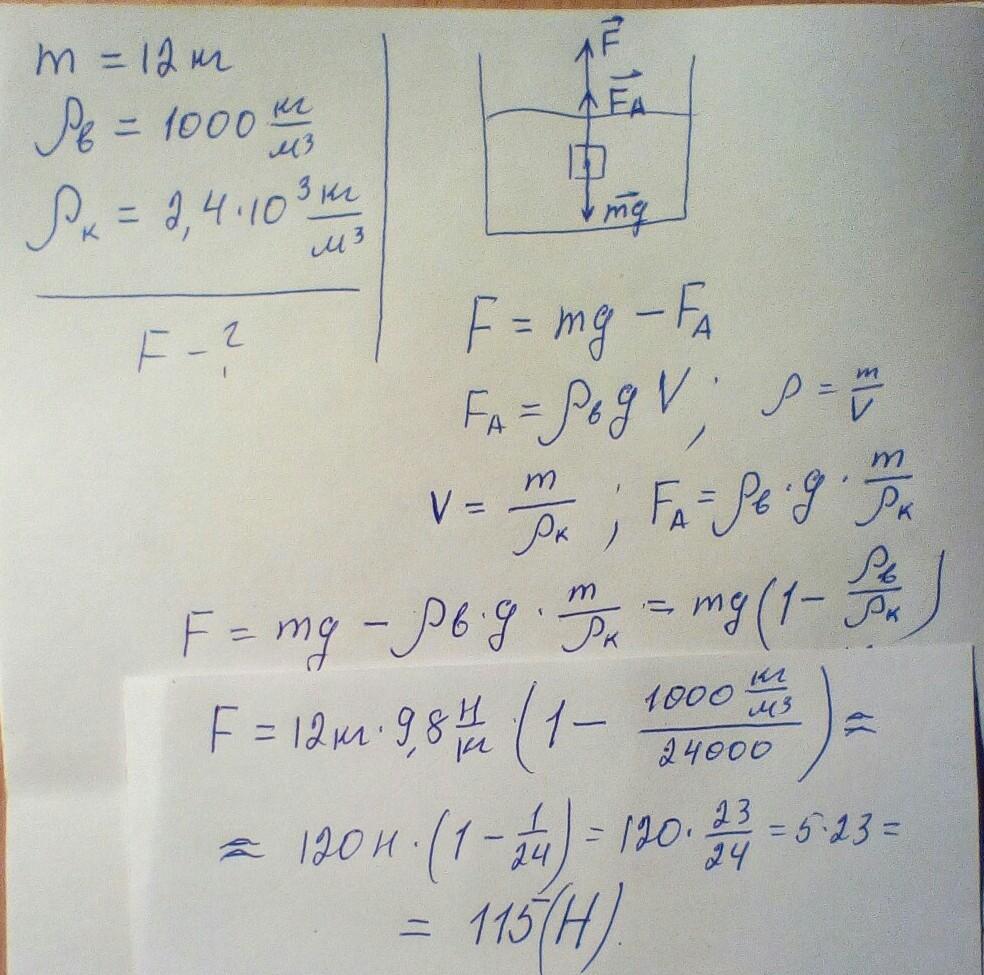 m = 12 кг
ρв = 1000 кг/м³
ρк = 2,4·10³ кг/м³
F – ?
F⃗
F⃗A
mg⃗
F = mg – FA
FA = ρв g V ; ρ = m/V
V = m/ρк ; FA = ρв · g · m/ρк
F = mg – ρв · g · m/ρк = mg (1 – ρв/ρк)
F = 12 кг · 9,8 Н/кг · (1 – 1000 кг/м³ / 24000) ≈
≈ 120 Н · (1 – 1/24) = 120 · 23/24 = 5·23 =
= 115 (Н).